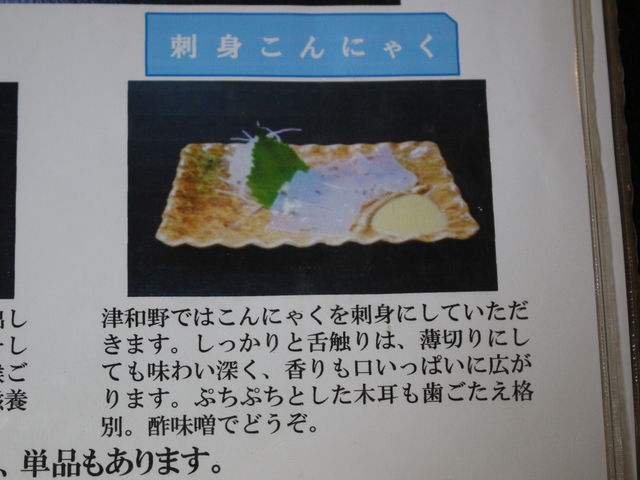 刺身こんにゃく
津和野ではこんにゃくを刺身にしていただ
きます。しっかりと舌触りは、薄切りにし
ても味わい深く、香りも口いっぱいに広が
ります。ぷちぷちとした木耳も歯ごたえ格
別。酢味噌でどうぞ。
し
し
ご
養
、単品もあります。